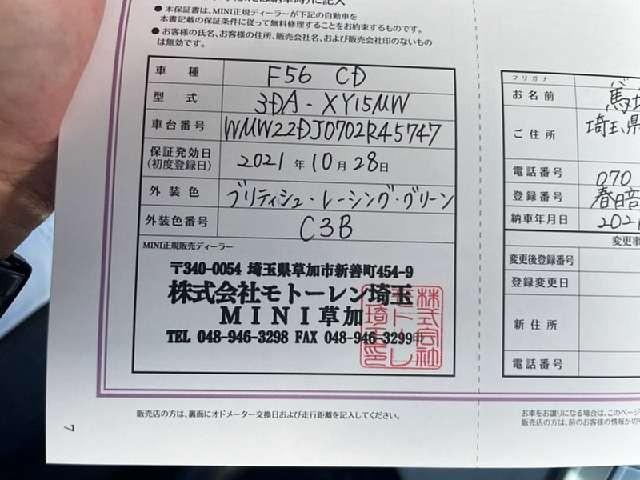 ● 本保証書は、MINI正規ディーラーが下記の自動車を
本書記載の保証条件に従って無料修理することをお約束するものです。
● お客様の氏名、お客様の住所、販売会社名、および販売会社印のないもの
は無効です。
車種 F56 CD
型式 3DA-XY15MW
車台番号 WMW22DJ0702R45747
保証発効日
(初度登録日) 2021年10月28日
外装色 ブリティシュ・レーシング・グリーン
外装色番号 C3B
MINI正規販売ディーラー
〒340-0054 埼玉県草加市新善町454-9
株式会社モトーレン埼玉
MINI草加
TEL 048-946-3298 FAX 048-946-3299
販売店の方は、裏面にオドメーター交換日および走行距離を記入してください。
7
フリガナ
お名前
ご住所 埼玉県
電話番号 070
登録番号 春日部
納車年月日 2021
変更事
変更後登録番号
登録変更日
新住所
電話番号
お車をお譲りになる場合は、このページ
販売店の方は、前のお客様の情報が切